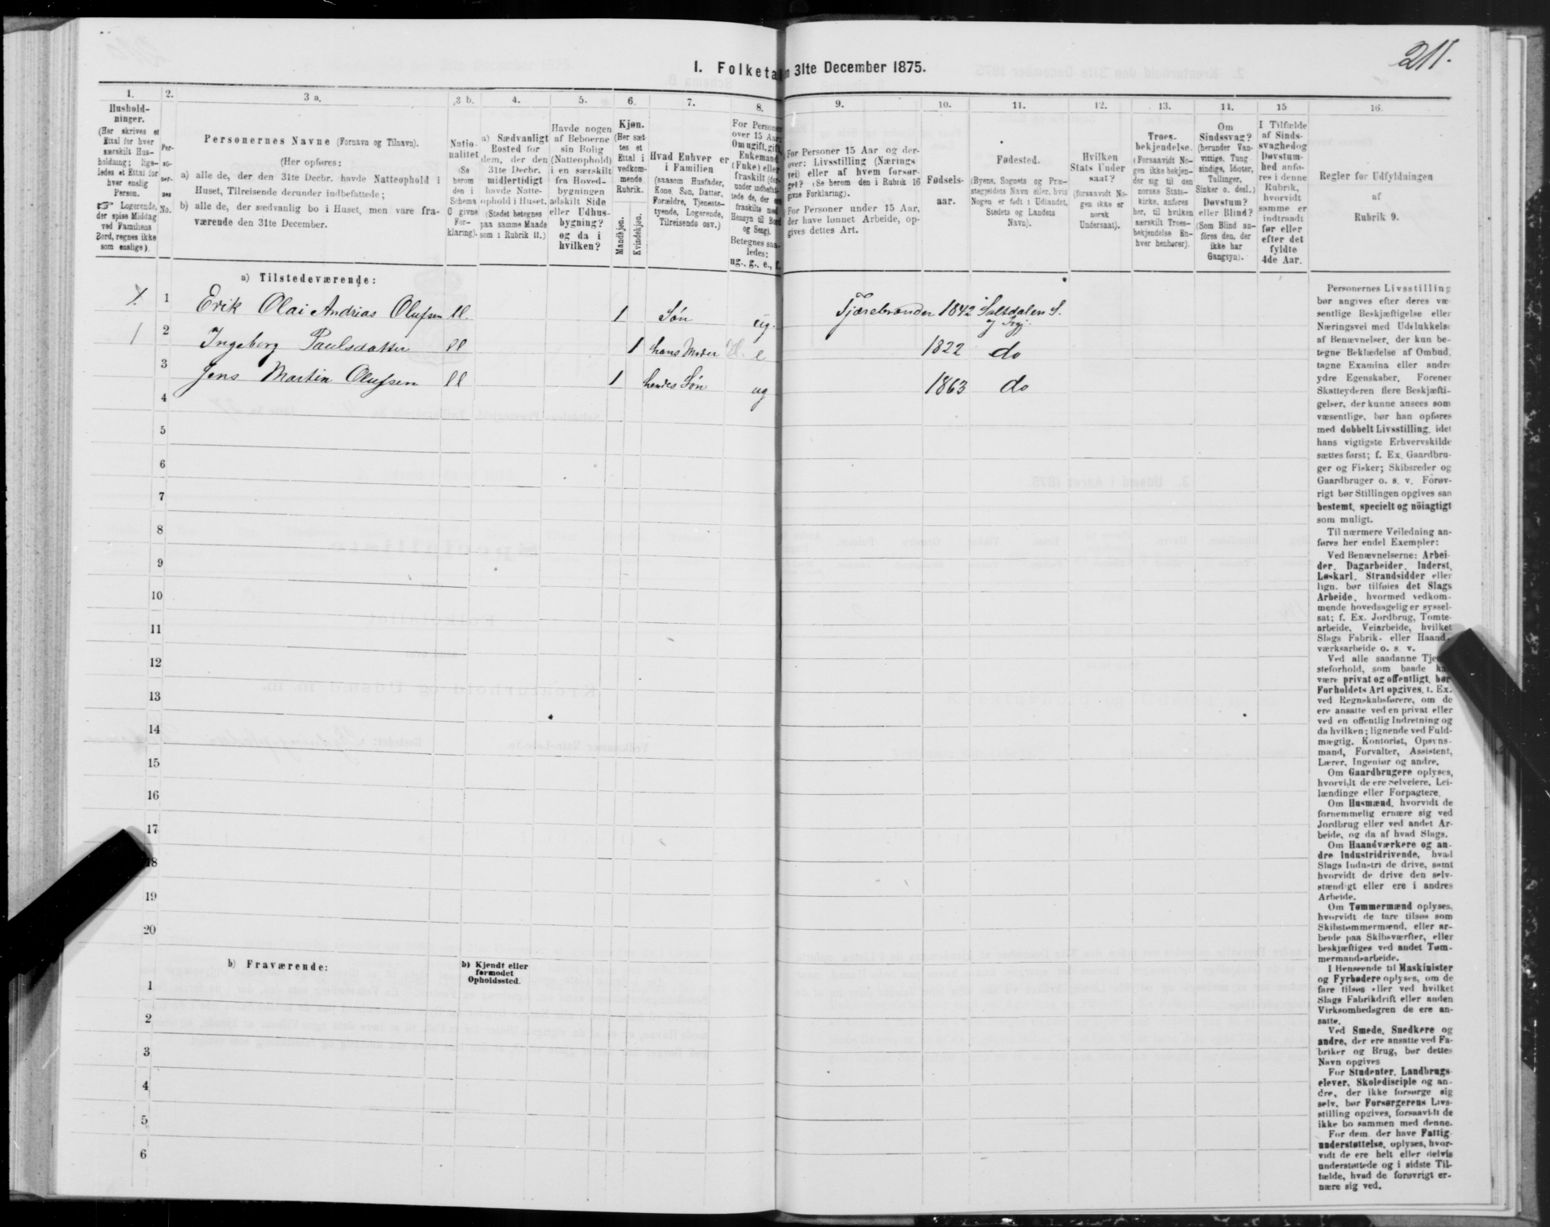 211.
I. Folketal den 31te December 1875.
1. 2. 3 a. 3 b. 4. 5. 6. 7. 8. 9. 10. 11. 12. 13. 14. 15 16.
Hushold-
ninger.
(Her skrives et
Ettal for hver
særskilt Hus-
holdning; lige-
ledes et Ettal for
hver enslig
Person.
☞ Logerende,
der spise Middag
ved Familiens
Bord, regnes ikke
som enslige).
Per-
so-
ner-
nes
No.
Personernes Navne (Fornavn og Tilnavn).
(Her opføres:
a) alle de, der den 31te Decbr. havde Natteophold i
Huset, Tilreisende derunder indbefattede;
b) alle de, der sædvanlig bo i Huset, men vare fra-
værende den 31te December.
Natio-
nalitet
(Se
herom
den i
Schema
0 givne
For-
klaring).
a) Sædvanligt
Bosted for
dem, der den
31te Decbr.
midlertidigt
havde Natte-
ophold i Huset.
(Stedet betegnes
paa samme Maade
som i Rubrik 11.)
Havde nogen
af Beboerne
sin Bolig
(Natteophold)
i en særskilt
fra Hoved-
bygningen
adskilt Side
eller Udhus-
bygning?
og da i
hvilken?
Kjøn.
(Her sæt-
tes et
Ettal i
vedkom-
mende
Rubrik.
Mandkjøn.
Kvindekjøn.
Hvad Enhver er
i Familien
(saasom Husfader,
Kone, Søn, Datter,
Forældre, Tjeneste-
tyende, Logerende,
Tilreisende osv.)
For Personer
over 15 Aar
Om ugift, gift,
Enkemand
(Enke) eller
fraskilt
Betegnes saa-
ledes:
ug., g., e., f.
For Personer 15 Aar og der-
over: Livsstilling (Nærings-
vei) eller af hvem forsør-
get? (Se herom den i Rubrik 16
givne Forklaring).
For Personer under 15 Aar,
der have lønnet Arbeide, op-
gives dettes Art.
Fødsels-
aar.
Fødested.
(Byens, Sognets og Præ-
stegjeldets Navn eller, hvis
Nogen er født i Udlandet,
Stedets og Landets
Navn).
Hvilken
Stats Under-
saat?
(forsaavidt No-
gen ikke er
norsk
Undersaat).
Troes-
bekjendelse.
(Forsaavidt No-
gen ikke bekjen-
der sig til den
norske Stats-
kirke, anføres
her, til hvilken
særskilt Troes-
bekjendelse En-
hver henhører).
Om
Sindssvag?
(herunder Van-
vittige, Tung-
sindige, Idioter,
Tullinger,
Sinker o. desl.)
Døvstum?
eller Blind?
(Som Blind an-
føres den, der
ikke har
Gangsyn).
I Tilfælde
af Sinds-
svaghed og
Døvstum-
hed anfø-
res i denne
Rubrik,
hvorvidt
samme er
indtraadt
før eller
efter det
fyldte
4de Aar.
Regler for Udfyldningen
af
Rubrik 9.
a) Tilstedeværende:
1 Erik Olai Andrias Olufsen N. 1 Søn ug. Tjærebrænder 1842 Saltdalen S.
1 2 Ingeborg Paulsdatter N 1 hans Moder e 1822 do
3 Jens Martin Olufsen N 1 hendes Søn ug 1863 do
4
5
6
7
8
9
10
11
12
13
14
15
16
17
18
19
20
b) Fraværende:
b) Kjendt eller
formodet
Opholdssted.
1
2
3
4
5
6
Personernes Livsstilling
bør angives efter deres væ-
sentlige Beskjæftigelse eller
Næringsvei med Udelukkelse
af Benævnelser, der kun be-
tegne Beklædelse af Ombud,
tagne Examina eller andre
ydre Egenskaber. Forener
Skatteyderen flere Beskjæfti-
gelser, der kunne ansees som
væsentlige, bør han opføres
med dobbelt Livsstilling, idet
hans vigtigste Erhvervskilde
sættes først; f. Ex. Gaardbru-
ger og Fisker; Skibsreder og
Gaardbruger o. s. v. Forøv-
rigt bør Stillingen opgives saa
bestemt, specielt og nöiagtigt
som muligt.
Til nærmere Veiledning an-
føres her endel Exempler:
Ved Benævnelserne: Arbei-
der, Dagarbeider, Inderst,
Løskarl, Strandsidder eller
lign. bør tilføies det Slags
Arbeide, hvormed vedkom-
mende hovedsagelig er syssel-
sat; f. Ex. Jordbrug, Tomte-
arbeide, Veiarbeide, hvilket
Slags Fabrik- eller Haand-
værksarbeide o. s. v.
Ved alle saadanne Tje-
nesteforhold, som baade kan
være privat og offentligt, bør
Forholdets Art opgives, t. Ex.
ved Regnskabsførere, om de
ere ansatte ved en privat eller
ved en offentlig Indretning og
da hvilken; lignende ved Fuld-
mægtig, Kontorist, Opsyns-
mand, Forvalter, Assistent,
Lærer, Ingeniør og andre.
Om Gaardbrugere oplyses,
hvorvidt de ere Selveiere, Lei-
lændinge eller Forpagtere.
Om Husmænd, hvorvidt de
fornemmelig ernære sig ved
Jordbrug eller ved andet Ar-
beide, og da af hvad Slags.
Om Haandværkere og an-
dre Industridrivende, hvad
Slags Industri de drive, samt
hvorvidt de drive den selv-
stændigt eller ere i andres
Arbeide.
Om Tømmermænd oplyses,
hvorvidt de fare tilsøs som
Skibstømmermænd, eller ar-
beide paa Skibsværfter, eller
beskjæftiges ved andet Tøm-
mermandsarbeide.
I Henseende til Maskinister
og Fyrbødere oplyses, om de
fare tilsøs eller ved hvilket
Slags Fabrikdrift eller anden
Virksomhedsgren de ere an-
satte.
Ved Smede, Snedkere og
andre, der ere ansatte ved Fa-
briker og Brug, bør dettes
Navn opgives
For Studenter, Landbrugs-
elever, Skoledisciple og an-
dre, der ikke forsørge sig
selv, bør Forsørgerens Livs-
stilling opgives, forsaavidt de
ikke bo sammen med denne.
For dem, der have Fattig-
understøttelse, oplyses, hvor-
vidt de ere helt eller delvis
understøttede og i sidste Til-
fælde, hvad de forøvrigt er-
nære sig ved.